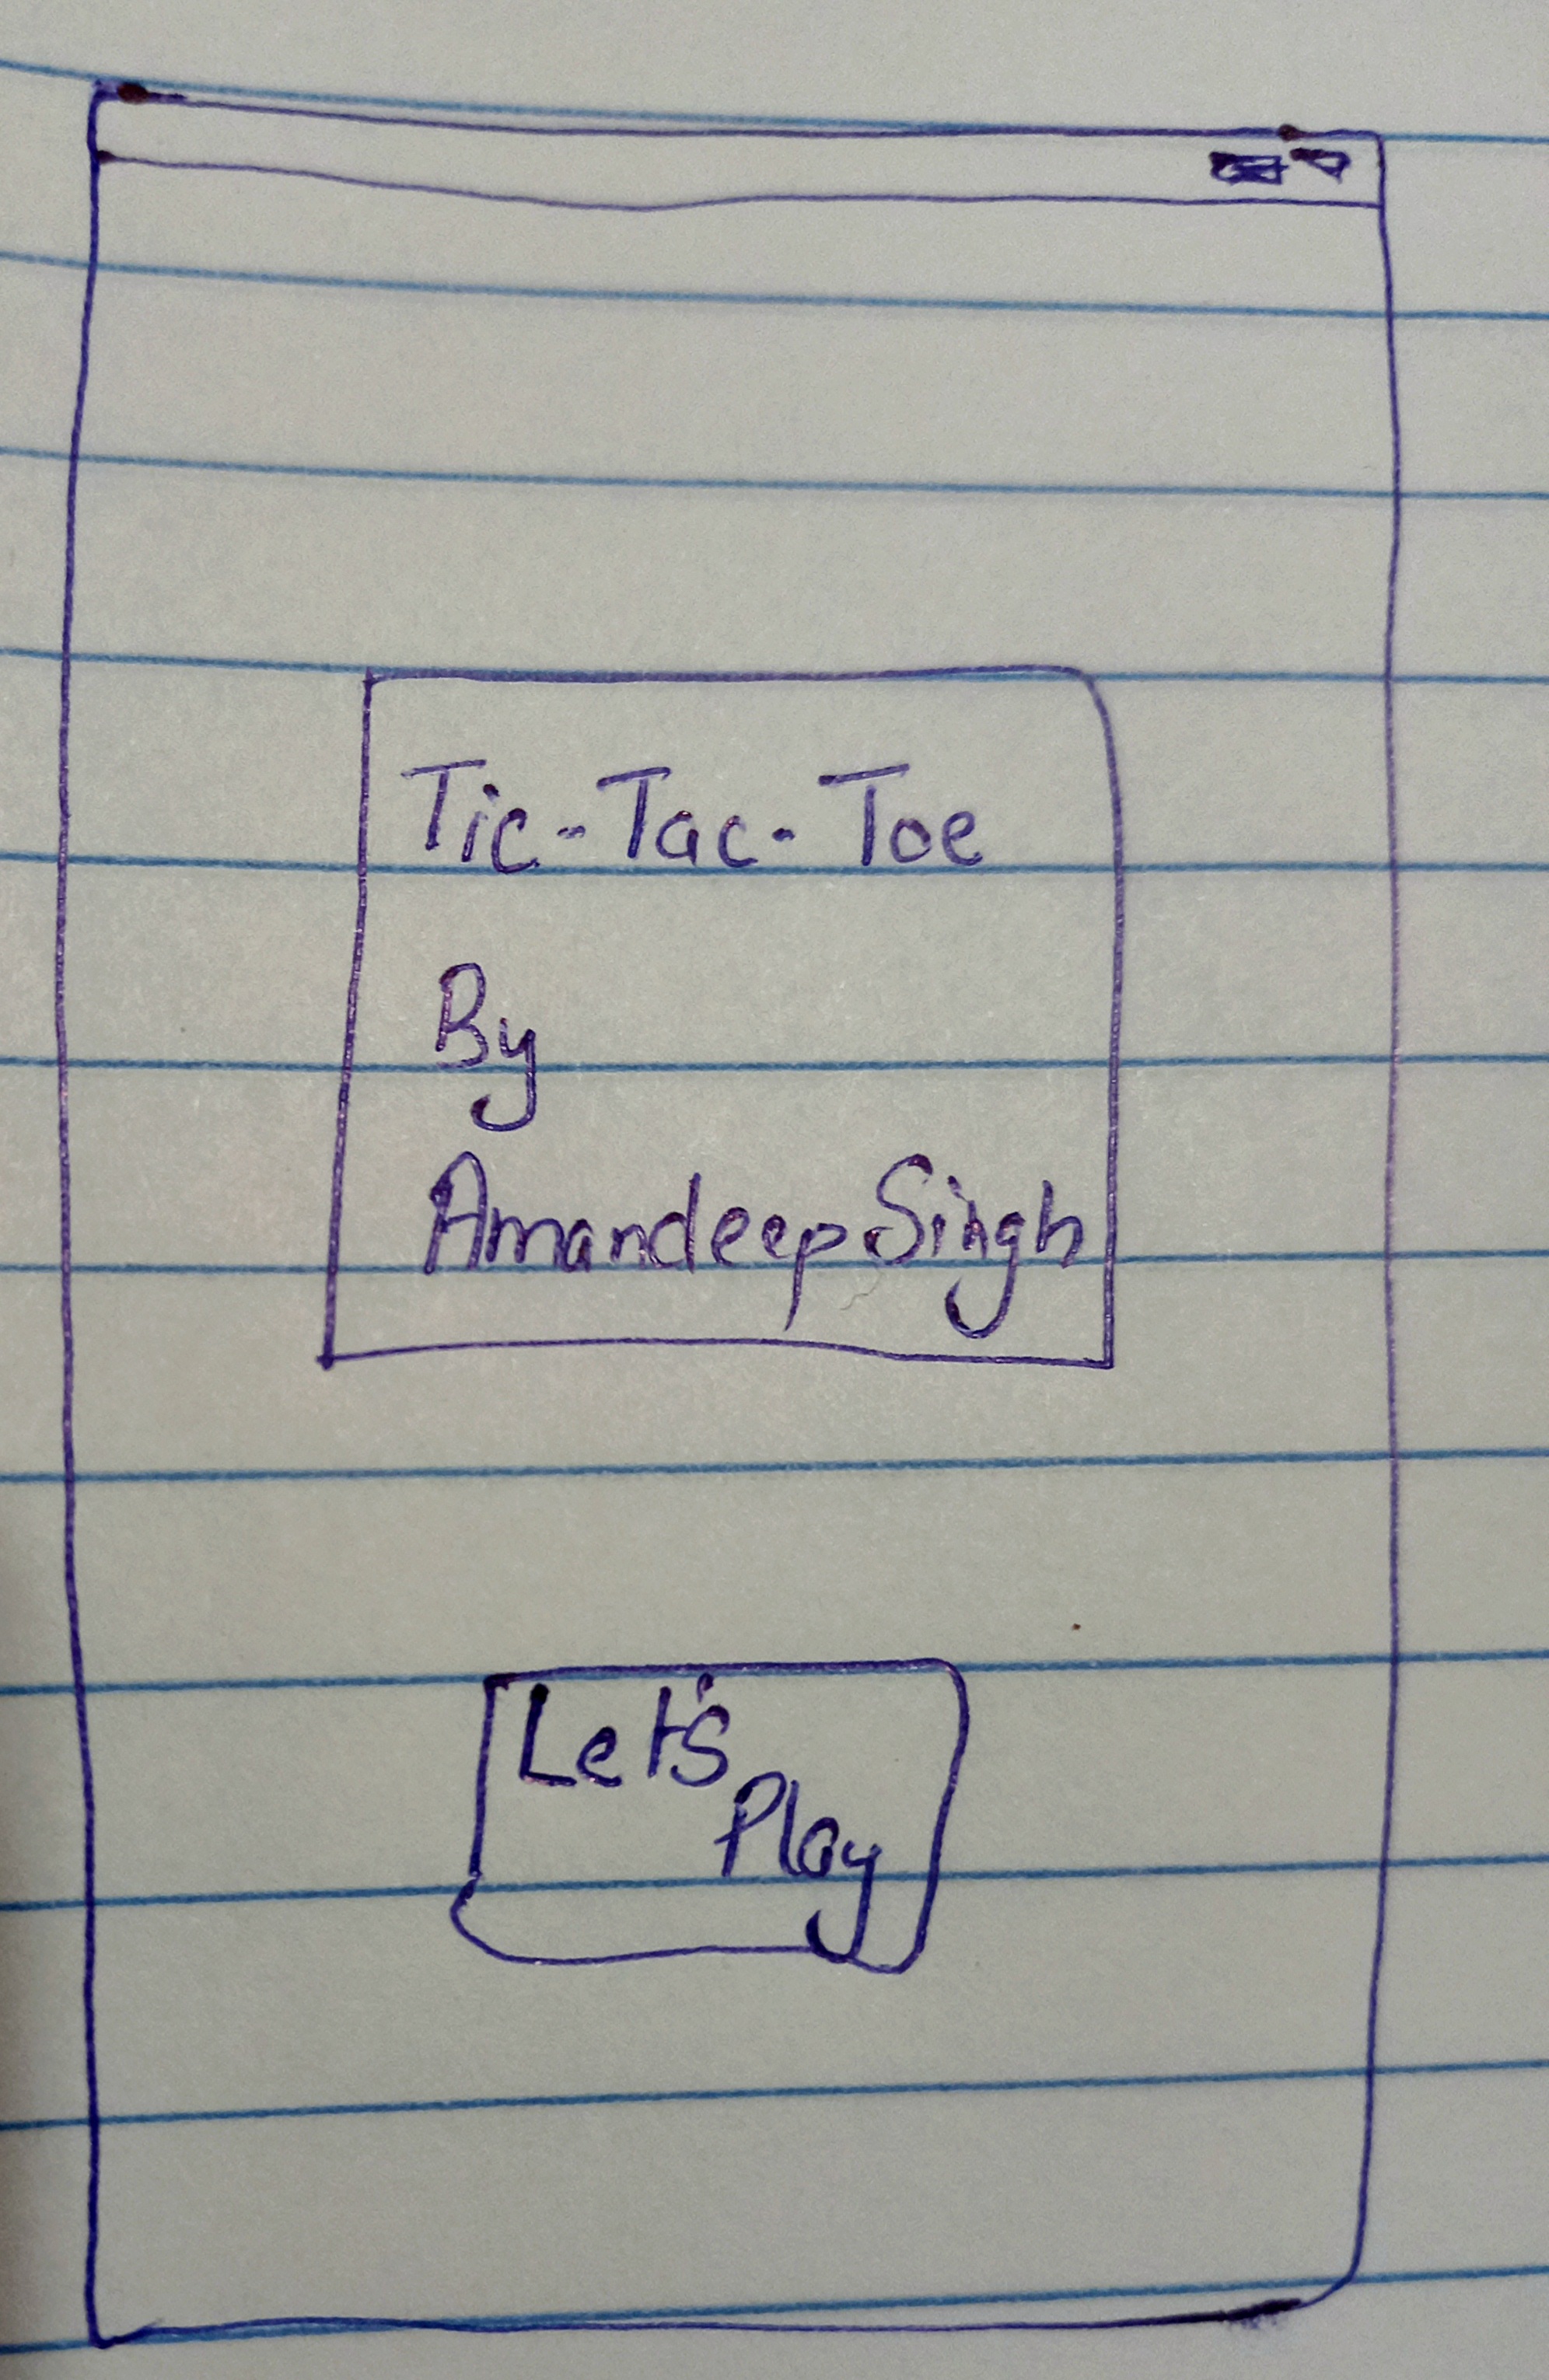 Tic-Tac-Toe
By
Amandeep Singh
Let's
Play